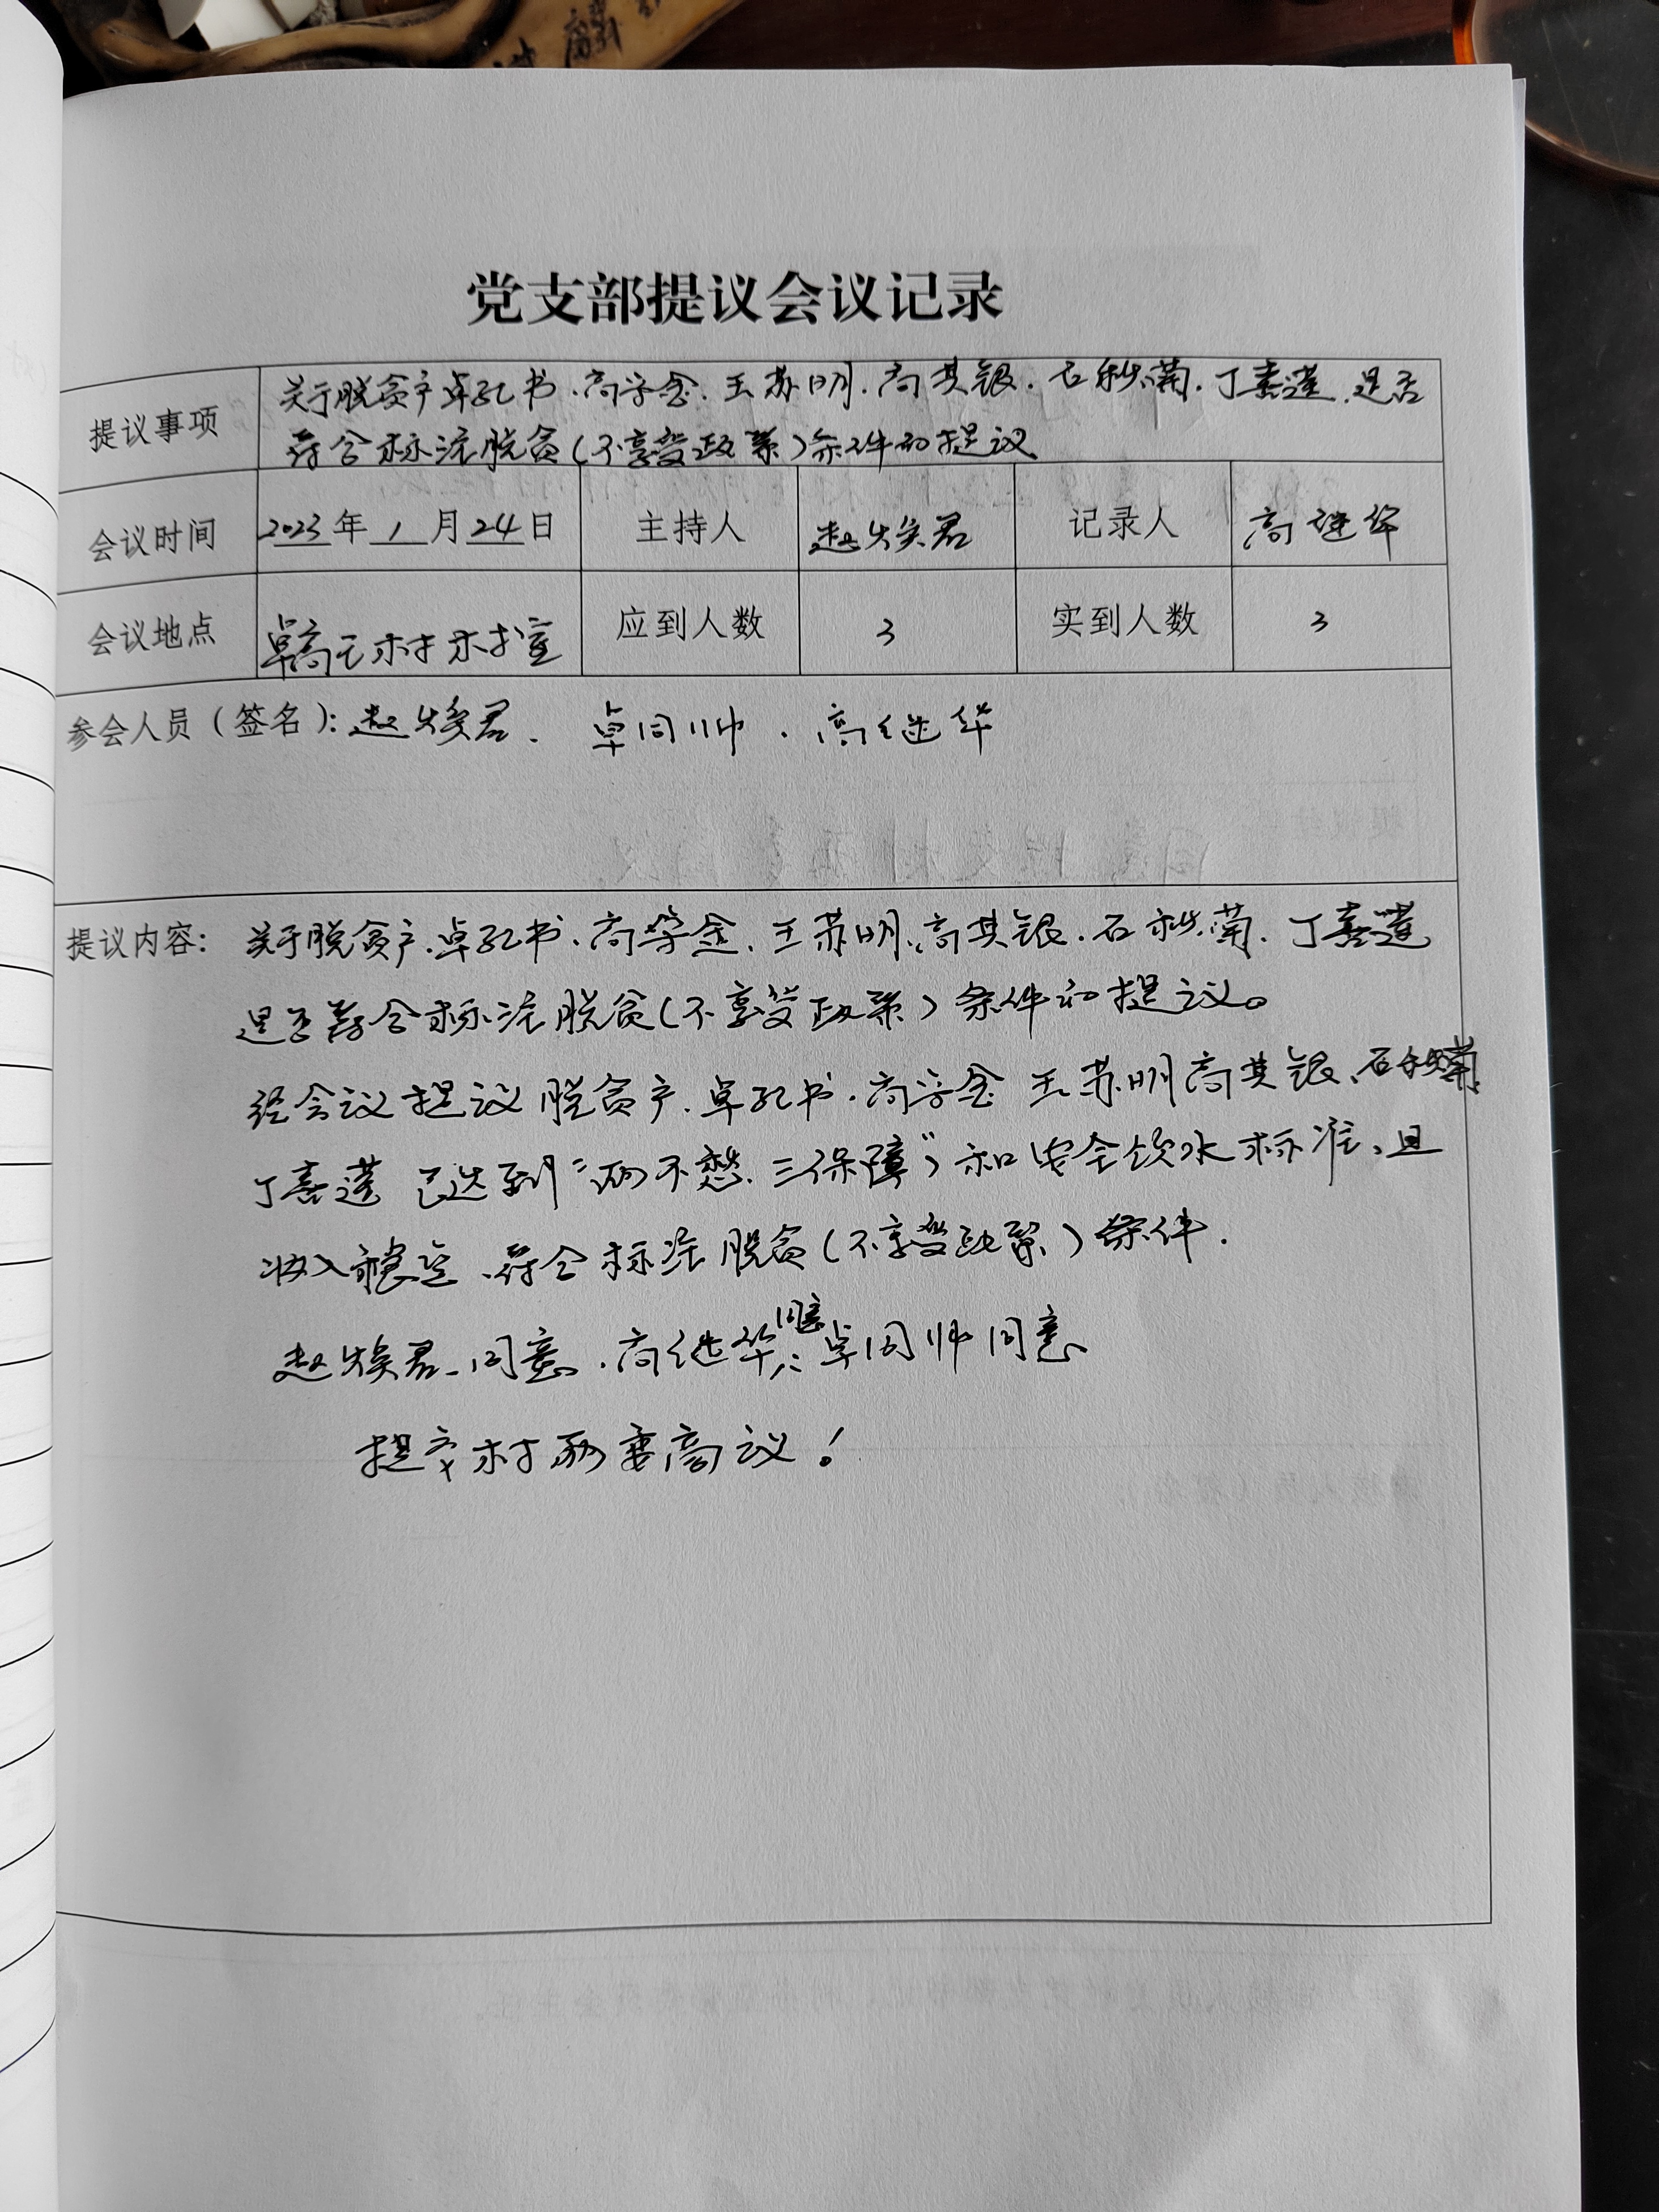 党支部提议会议记录
提议事项
关于脱贫户卓孔书、高学金、王苏明、高其银、石秋菊、丁素莲、是否
符合标注脱贫(不享受政策)条件的提议
会议时间 2023年1月24日 主持人 赵焕君 记录人 高继华
会议地点 卓高王村村室 应到人数 3 实到人数 3
参会人员(签名): 赵焕君、卓同帅、高继华
提议内容: 关于脱贫户、卓孔书、高学金、王苏明、高其银、石秋菊、丁素莲
是否符合标注脱贫(不享受政策)条件的提议。
经会议提议脱贫户、卓孔书、高学金 王苏明 高其银、石秋菊、
丁素莲 已达到“两不愁、三保障”和安全饮水标准、且
收入稳定、符合标注脱贫(不享受政策)条件.
赵焕君、同意、高继华同意、卓同帅同意
提交村两委商议!